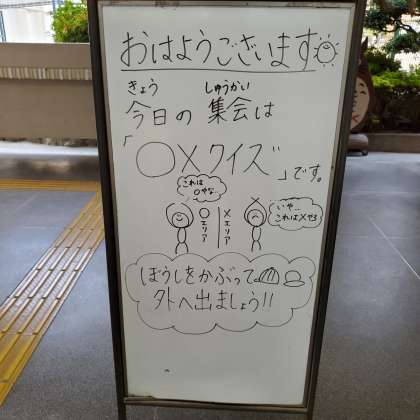 おはようございます
きょう しゅうかい
今日の 集会は
「○×クイズ」です。
これは
○やな…
○エリア
×エリア
いや…
これは×やろ
ぼうしをかぶって
外へ出ましょう!!